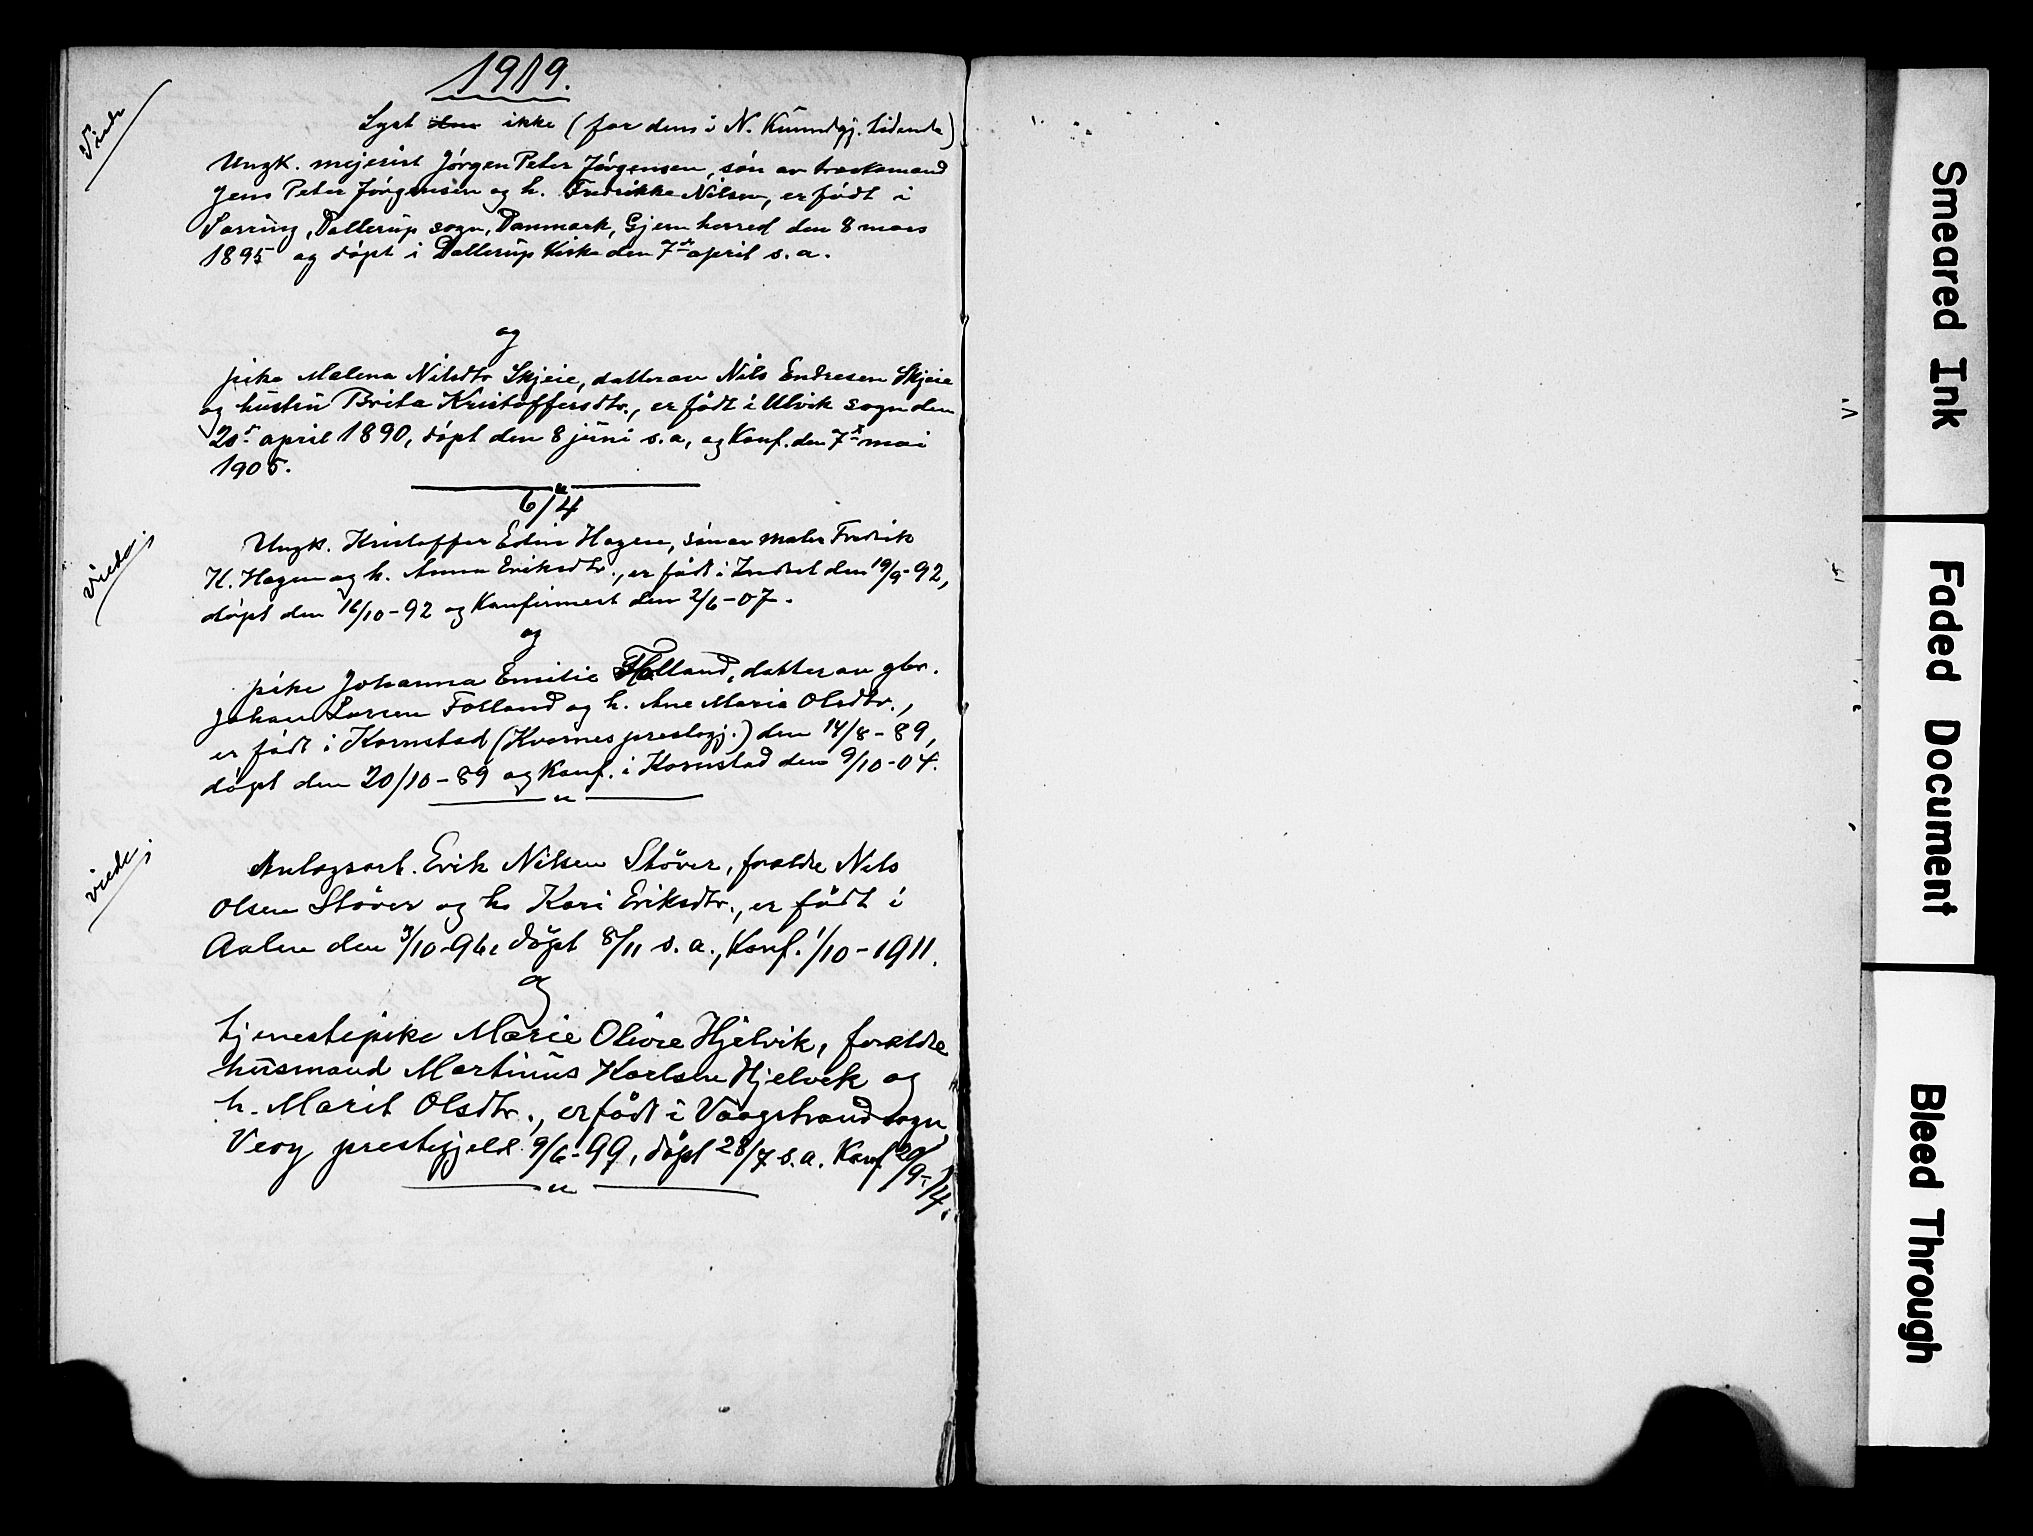 1919.
Lyst ikke (for dem i N. Kunndgj. tidende)
Viede
Ungk. mejerist Jørgen Peter Jørgensen, søn av
Jens Peter Jørgensen og h. Fredrikke Nilsen, er født i
Sorring, Dallerup sogn, Danmark, Gjern herred den 8 mars
1895 og døpt i Dallerup Kirke den 7de april s.a.
og
pike Malena Nilsdtr Skjeie, datter av Nils Endresen Skjeie
og hustru Brita Kristoffersdtr., er født i Ulvik sogn den
20de april 1890, døpt den 8 juni s.a, og Konf. den 7de mai
1905.
6/4
viede
Ungk. Kristoffer Edin Hagen, søn av maler Fredrik
H. Hagen og h. Anna Eriksdtr., er født i Indset den 19/9-92,
døpt den 16/10-92 og Konfirmert den 2/6-07.
og
pike Johanna Emilie Folland, datter av gbr.
Johan Larsen Folland og h. Ane Maria Olsdtr.,
er født i Kornstad (Kvernes prestegj.) den 14/8-89,
døpt den 20/10-89 og Konf. i Kornstad den 9/10-04.
viede
Anlegsarb. Erik Nilsen Støver, foreldre Nils
Olsen Støver og h. Kari Eriksdtr., er født i
Aalen den 3/10-96, døpt 8/11 s.a., Konf. 1/10-1911.
og
tjenestepike Marie Olivie Hjelvik, foreldre
husmand Martinus Karlsen Hjelvik og
h. Marit Olsdtr., er født i Vaagstrand sogn
Veøy prestegjeld 9/6-99, døpt 28/7 s.a. Konf 20/9-14.
Smeared Ink
Faded Document
Bleed Through